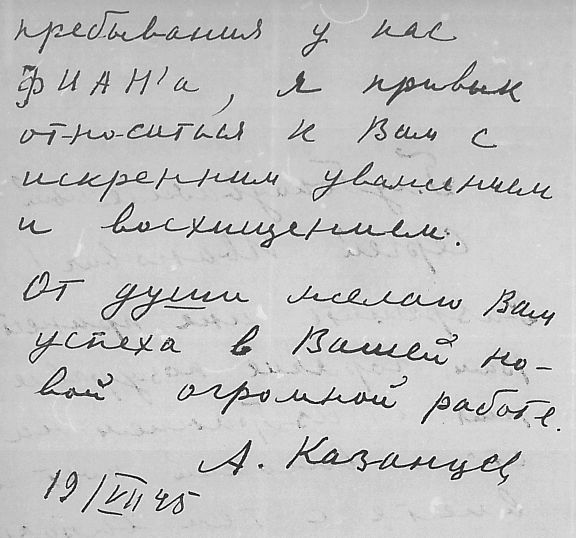 пребывания у нас
ФИАН'а, я привык
относиться к Вам с
искренним уважением
и восхищением.
От души желаю Вам
успеха в Вашей но-
вой огромной работе.
А. Казанцев
19/VII 45